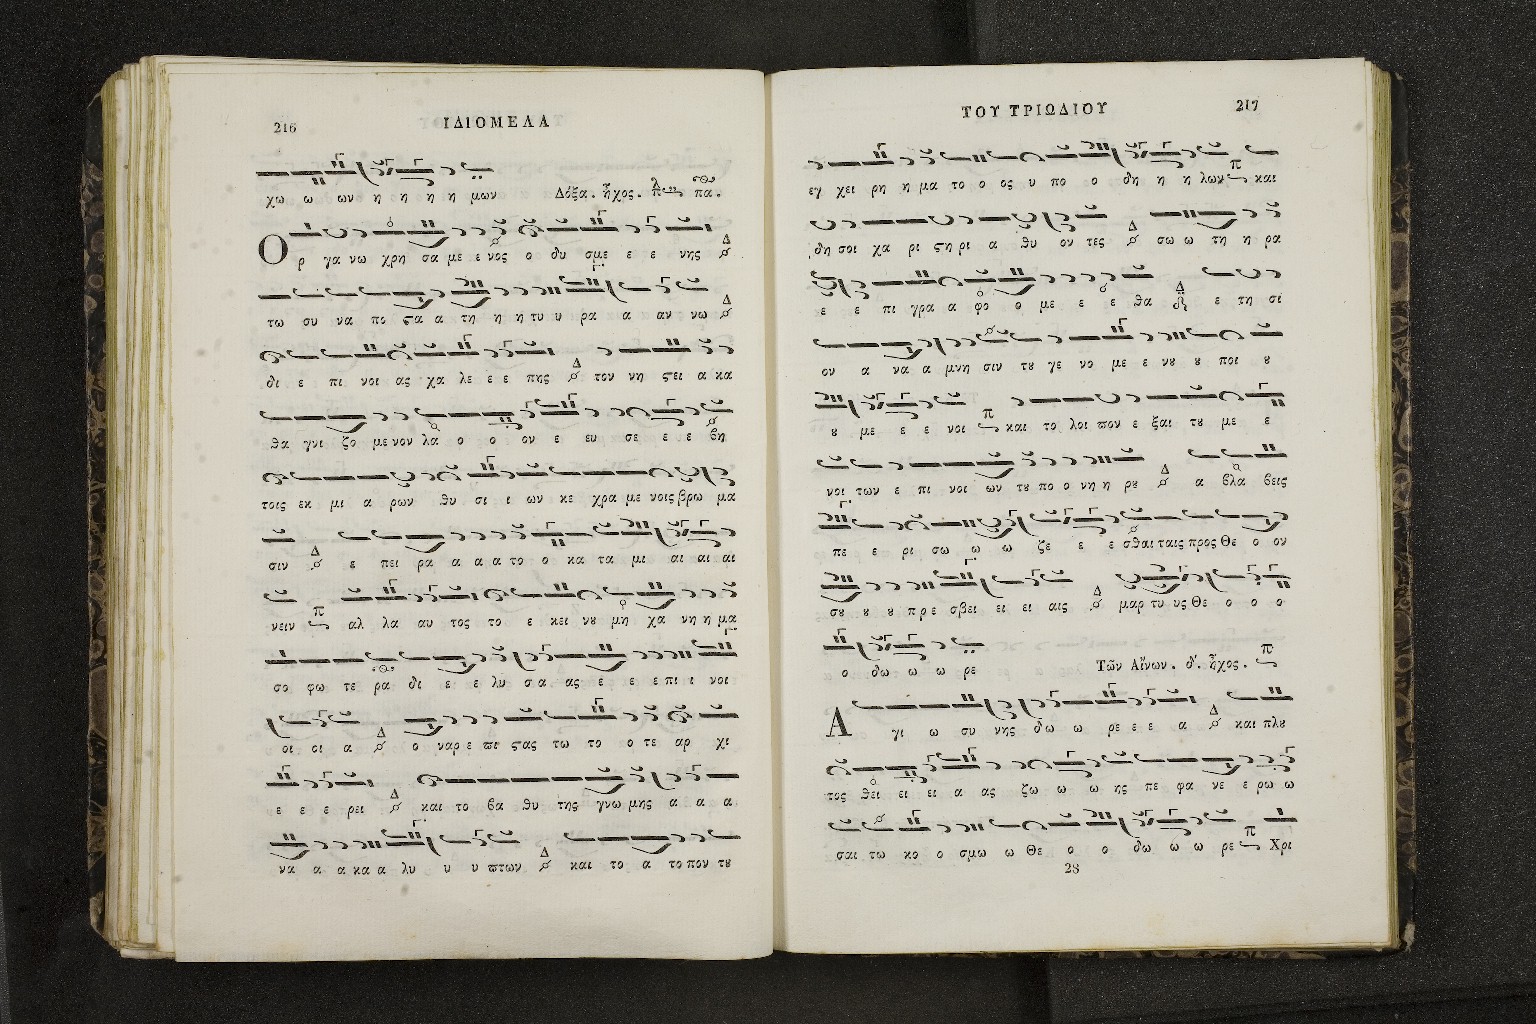 216
ΙΔΙΟΜΕΛΑ
χω ω ων η η η η μων Δόξα. ἦχος. πα.
Ο ρ γα νω χρη σα με ε νος ο δυ σμε ε ε νης
τω συ να πο ϛα α τη η η τυ υ ρα α αν νω
δι ε πι νοι ας χα λε ε ε πης τον νη ϛει α κα
θα γνι ζο με νον λα ο ο ον ε ευ σε ε ε βη
τοις εκ μι α ρων θυ σι ι ων κε χρα με νοις βρω μα
σιν ε πει ρα α α α το ο κα τα μι αι αι αι
νειν αλ λα αυ τος το ε κει νȣ μη χα νη η μα
σο φω τε ρα δι ε ε λυ σα ας ε ε ε πι ι νοι
οι οι α ο ναρ ε πι ϛας τω το ο τε αρ χι
ε ε ε ρει και το βα θυ της γνω μης α α α
να α α κα α λυ υ υ πτων και το α το πον τȣ
ΤΟΥ ΤΡΙΩΔΙΟΥ
217
εγ χει ρη η μα το ο ος υ πο ο δη η η λων και
δη σοι χα ρι ϛη ρι α θυ ον τες σω ω τη η ρα
ε ε πι γρα α φο ο με ε ε θα ε τη σι
ον α να α μνη σιν τȣ γε νο με ε νȣ ȣ ποι ȣ
ȣ με ε ε νοι και το λοι πον ε ξαι τȣ με ε
νοι των ε πι νοι ων τȣ πο ο νη η ρȣ α βλα βεις
πε ε ρι σω ω ω ζε ε ε σθαι ταις προς Θε ο ον
σȣ ȣ ȣ πρε σβει ει ει αις μαρ τυ υς Θε ο ο ο
ο δω ω ω ρε Τῶν Αἴνων. δ'. ἦχος.
Α γι ω συ νης δω ω ρε ε ε α και πλȣ
τος θει ει ει α ας ζω ω ω ης πε φα νε ε ρω ω
σαι τω κο ο σμω ω Θε ο ο δω ω ω ρε Χρι
28